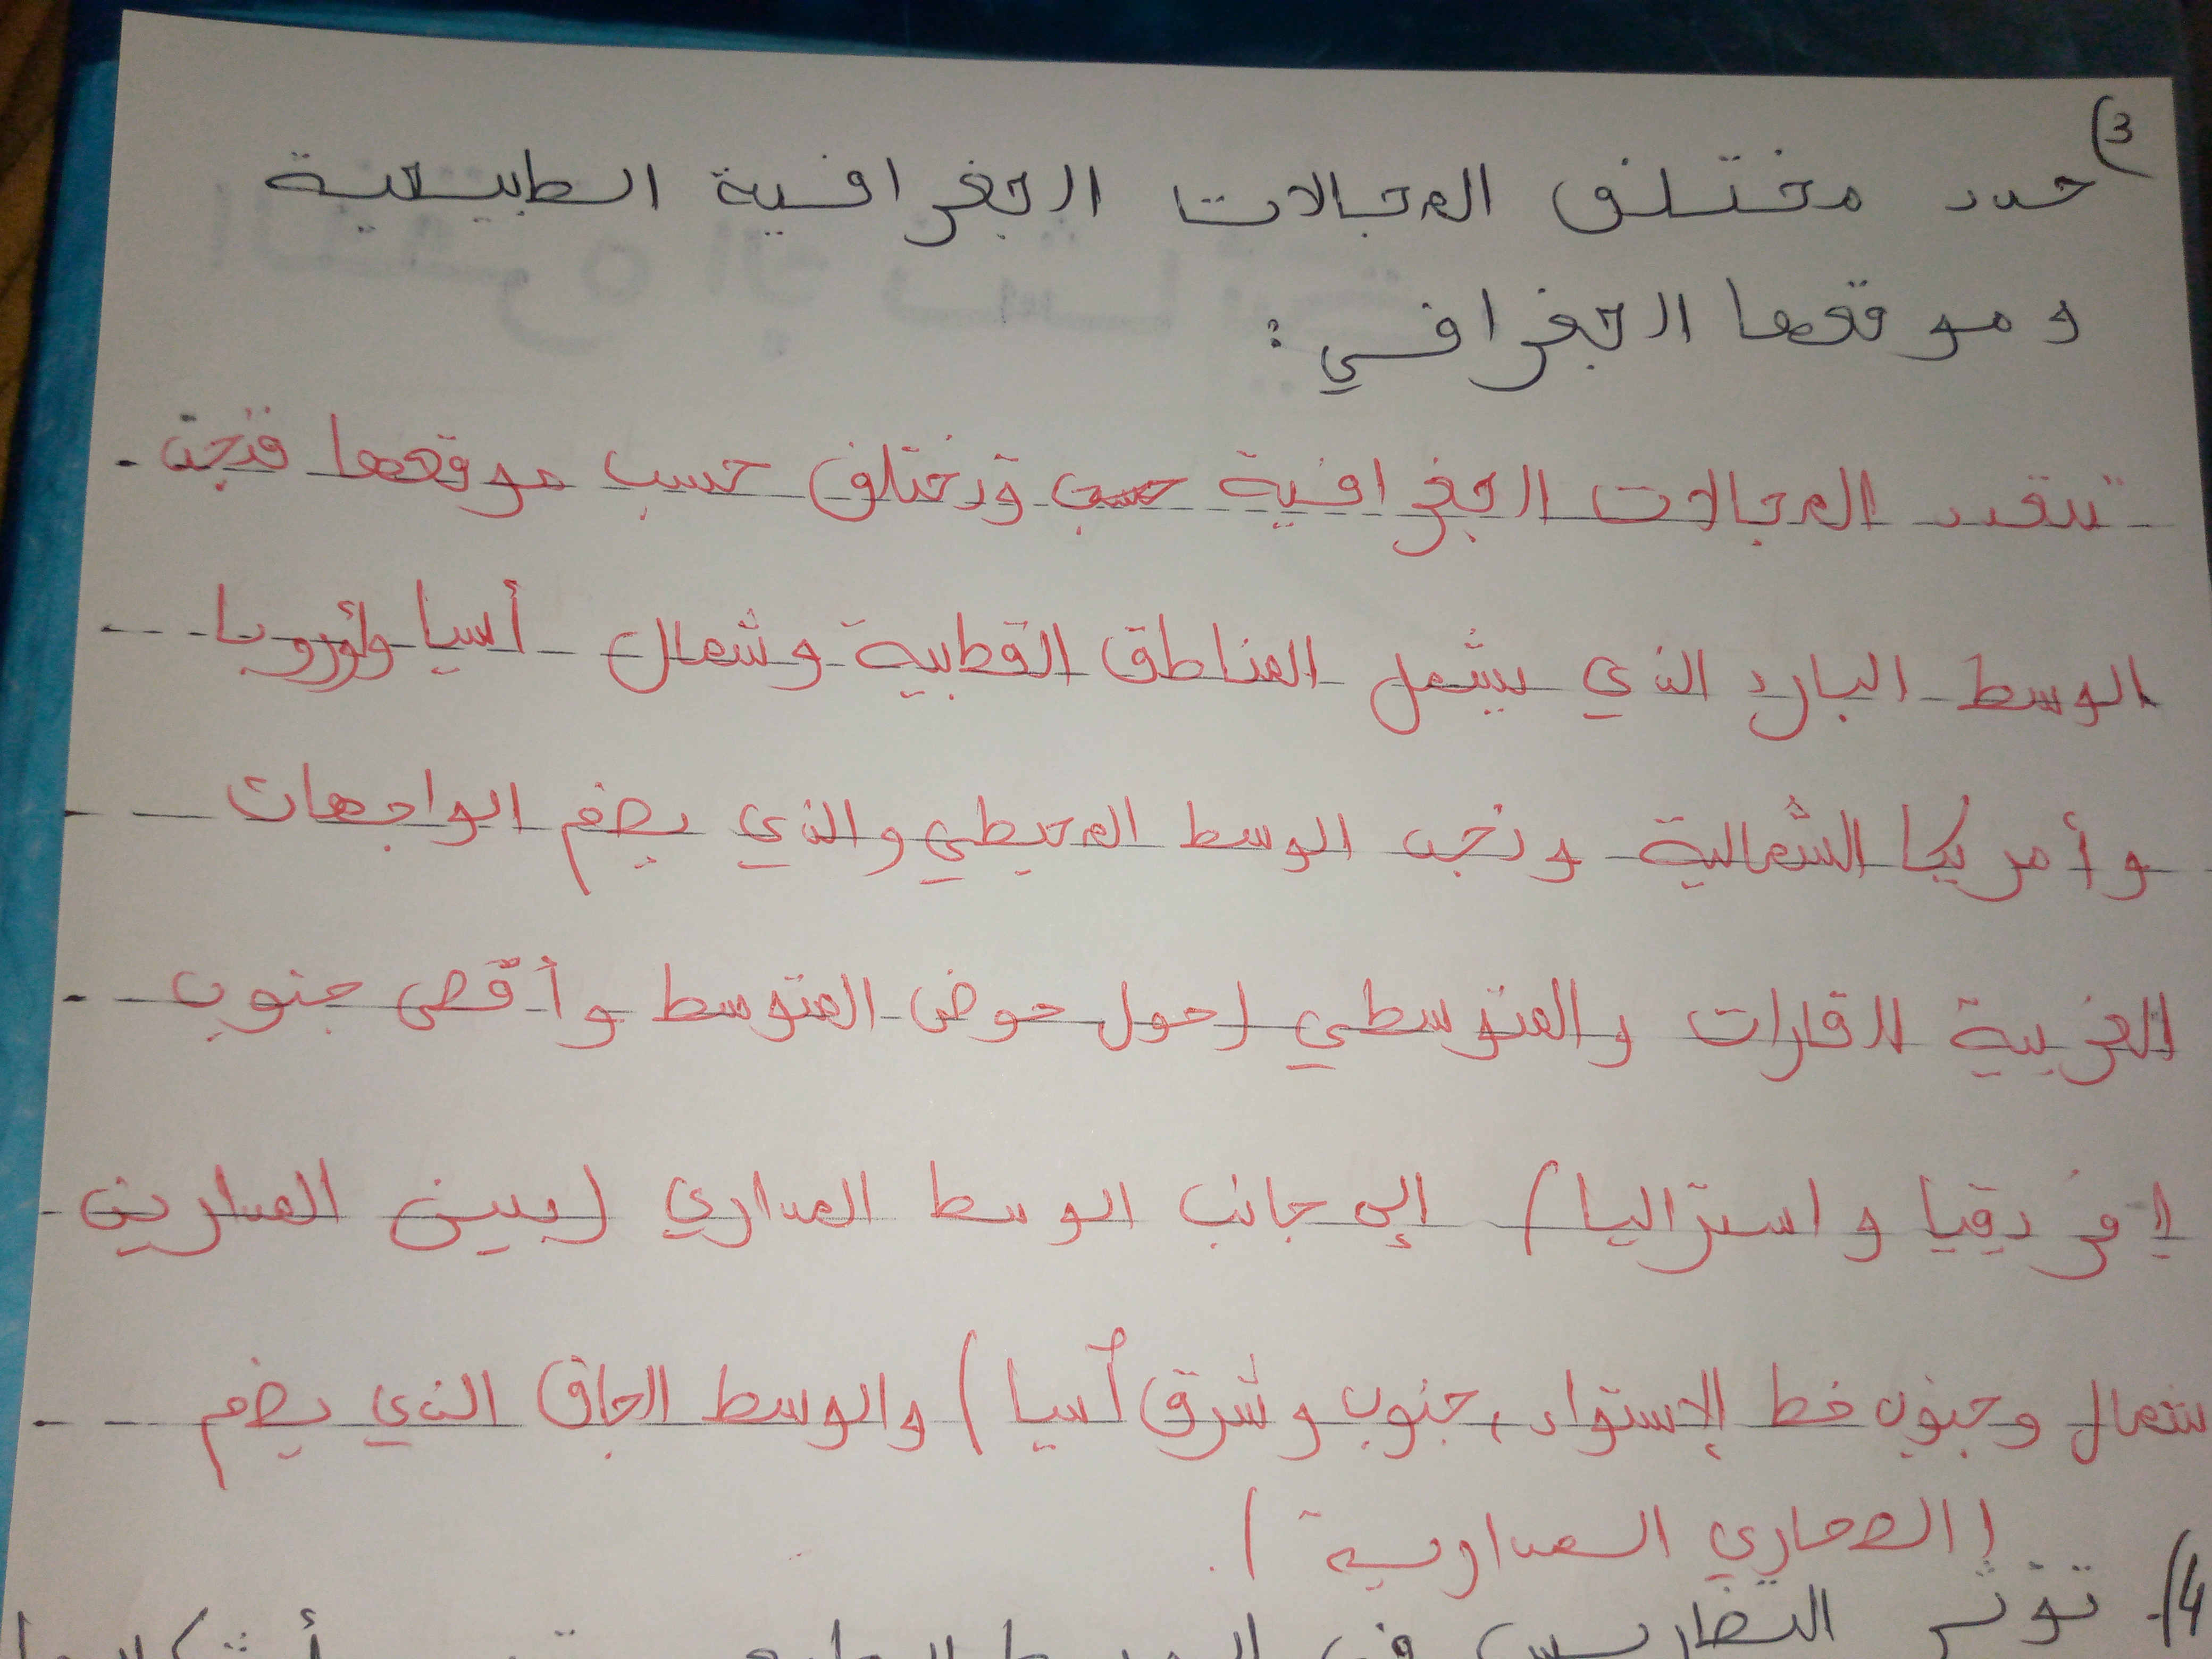 3)
حدد مختلف المجالات الجغرافية الطبيعية
وموقعها الجغرافي :
تتعدد المجالات الجغرافية وتختلف حسب موقعها فنجد
الوسط البارد الذي يشمل المناطق القطبية وشمال أسيا وأوروبا
وأمريكا الشمالية ونجد الوسط المحيطي والذي يضم الواجهات
الغربية للقارات والمتوسطي (حول حوض المتوسط وأقصى جنوب
إفريقيا واستراليا) إلى جانب الوسط المداري (بين المدارين
شمال وجنوب خط الإستواء، جنوب وشرق أسيا) والوسط الجاف الذي يضم
(الصحاري المدارية).
4) تؤثر التضاريس في